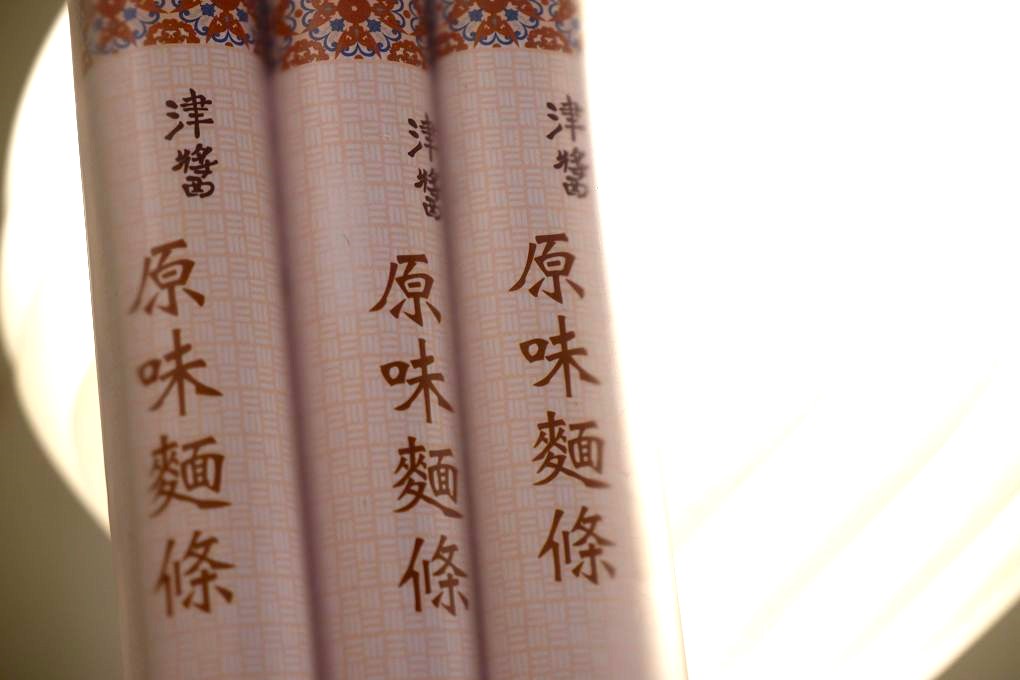 津醬
原味麵條
津醬
原味麵條
津醬
原味麵條